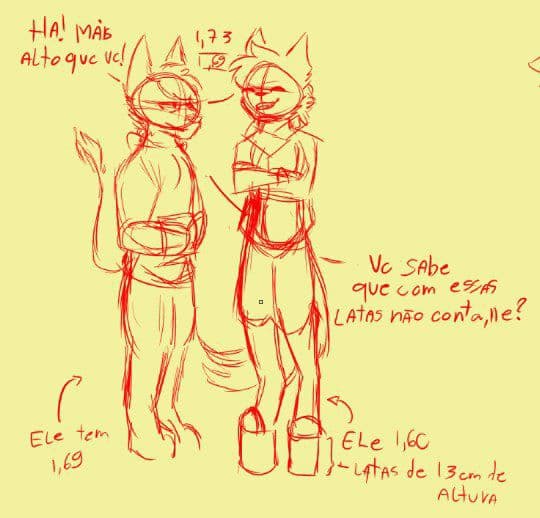 HA! MAS
ALTO que vc!
1,73
1,69
Vc SABE
que com essas
LATAS não conta, né?
ELe tem
1,69
ELe 1,60
LATAS de 13cm de
ALTURA